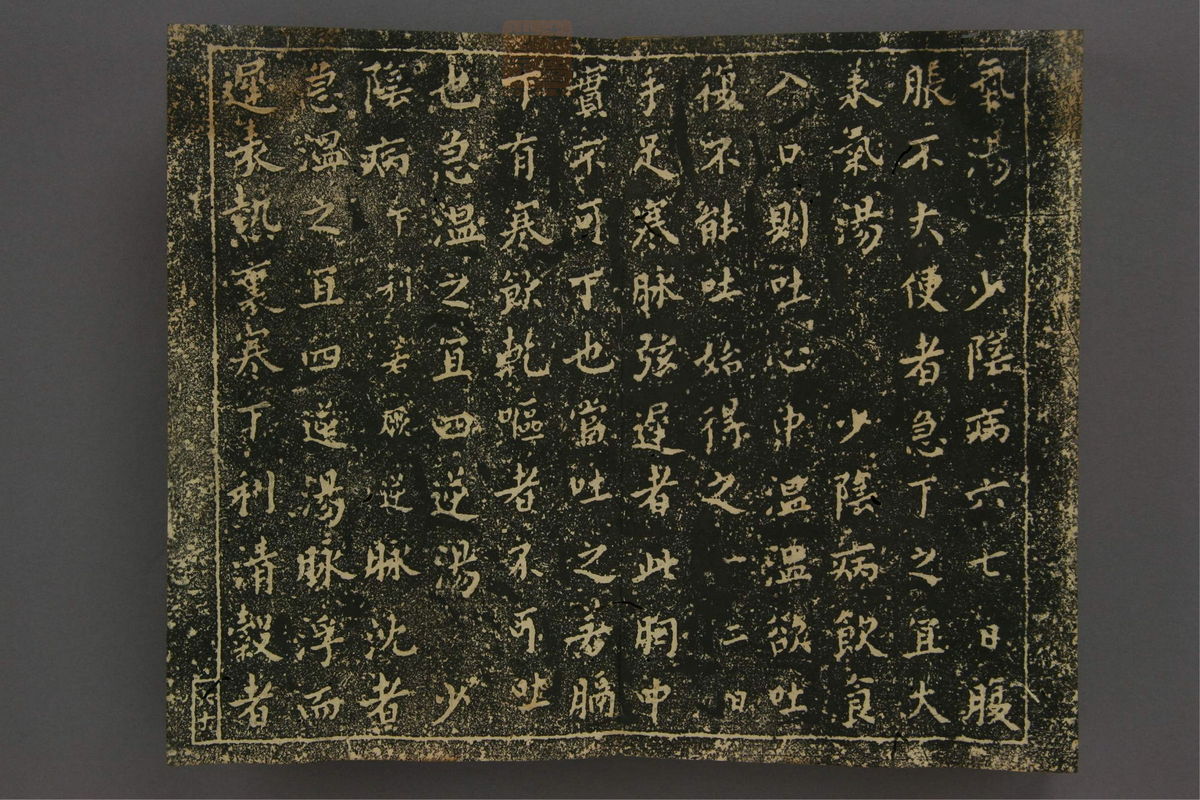 氣湯　少陰病六七日腹
脹不大便者急下之宜大
承氣湯　少陰病飲食
入口則吐心中温温欲吐
復不能吐始得之一二日
手足寒脉弦遲者此胸中
實不可下也當吐之若膈
下有寒飲乾嘔者不可吐
也急温之宜四逆湯　少
陰病下利若厥逆脉沈者
急温之宜四逆湯脉浮而
遲表熱裏寒下利清穀者